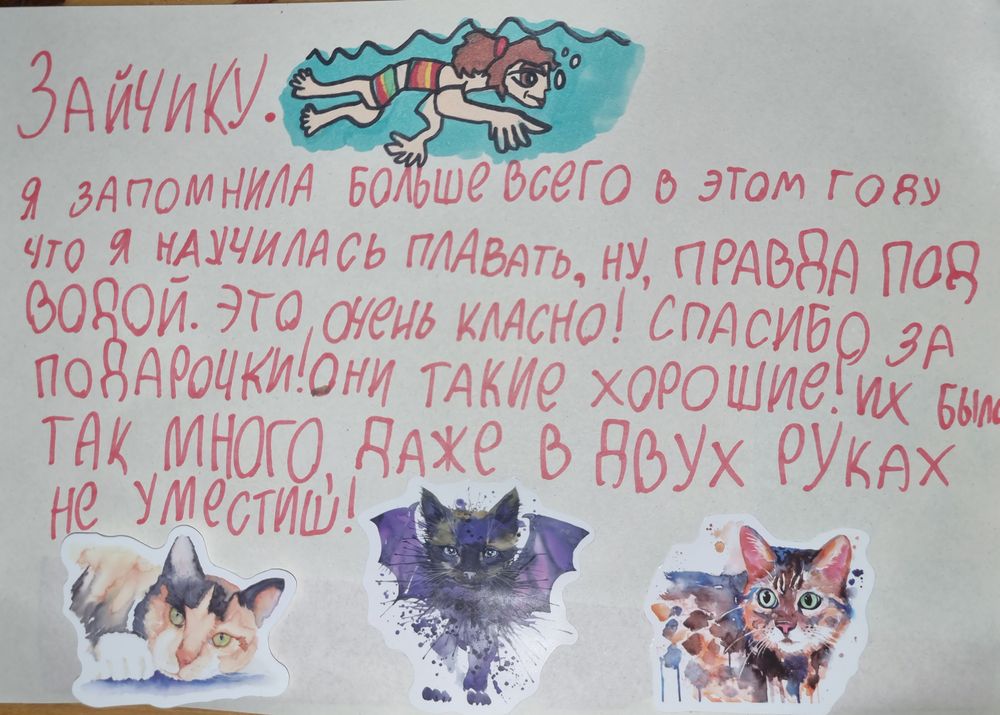 Зайчику.
Я запомнила больше всего в этом году
что я научилась плавать, ну, правда под
водой. Это, очень класно! Спасибо за
подарочки! Они такие хорошие! их было
так много, даже в двух руках
не уместиш!